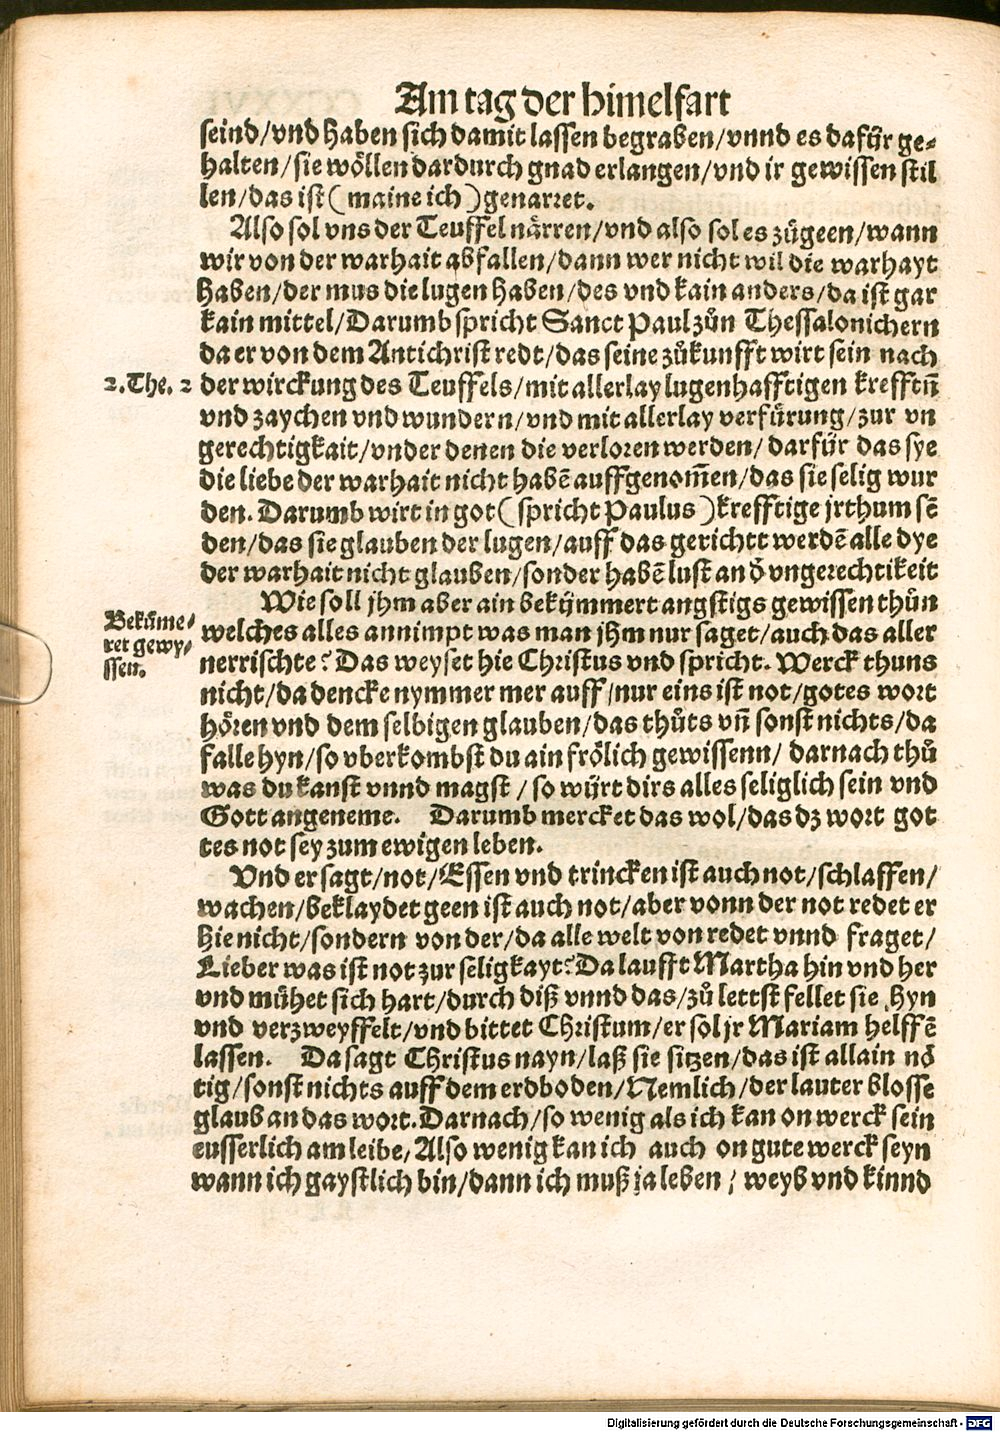 Am tag der himelfart
seind/vnd haben sich damit lassen begraben/vnnd es dafür ge⸗
halten/sie wöllen dardurch gnad erlangen/vnd ir gewissen stil
len/das ist (maine ich) genarret.
Also sol vns der Teuffel närren/vnd also sol es zůgeen/wann
wir von der warhait abfallen/dann wer nicht wil die warhayt
haben/der mus die lugen haben/des vnd kain anders/da ist gar
kain mittel/Darumb spricht Sanct Paul zůn Thessalonichern
da er von dem Antichrist redt/das seine zůkunfft wirt sein nach
2.The. 2 der wirckung des Teuffels/mit allerlay lugenhafftigen krefftñ
vnd zaychen vnd wundern/vnd mit allerlay verfürung/zur vn
gerechtigkait/vnder denen die verloren werden/ darfür das sye
die liebe der warhait nicht habē auffgenom̄en/das sie selig wur
den. Darumb wirt in got (spricht Paulus) krefftige jrthum sē
den/das sie glauben der lugen/auff das gerichtt werdē alle dye
der warhait nicht glauben/sonder habē lust an d̄ vngerechtikeit
Wie soll jhm aber ain bekümmert angstigs gewissen thůn
Bekūme⸗
ret gewy⸗
ssen.
welches alles annimpt was man jhm nur saget/auch das aller
nerrischte? Das weyset hie Christus vnd spricht. Werck thuns
nicht/da dencke nymmer mer auff/nur eins ist not/gotes wort
hören vnd dem selbigen glauben/das thůts vñ sonst nichts/da
falle hyn/so vberkombst du ain frölich gewissenn/ darnach thů
was du kanst vnnd magst/so würt dirs alles seliglich sein vnd
Gott angeneme. Darumb mercket das wol/das dz wort got
tes not sey zum ewigen leben.
Vnd er sagt/not/Essen vnd trincken ist auch not/schlaffen/
wachen/beklaydet geen ist auch not/aber vonn der not redet er
hie nicht/sondern von der/da alle welt von redet vnnd fraget/
Lieber was ist not zur seligkayt? Da laufft Martha hin vnd her
vnd mühet sich hart/durch diß vnnd das/zů lettst fellet sie hyn
vnd verzweyffelt/vnd bittet Christum/er sol jr Mariam helffē
lassen. Da sagt Christus nayn/laß sie sitzen/das ist allain nö
tig/sonst nichts auff dem erdboden/Nemlich/der lauter blosse
glaub an das wort. Darnach/so wenig als ich kan on werck sein
eusserlich am leibe/Also wenig kan ich auch on gute werck seyn
wann ich gaystlich bin/dann ich muß ja leben/ weyb vnd kinnd
Digitalisierung gefördert durch die Deutsche Forschungsgemeinschaft - DFG